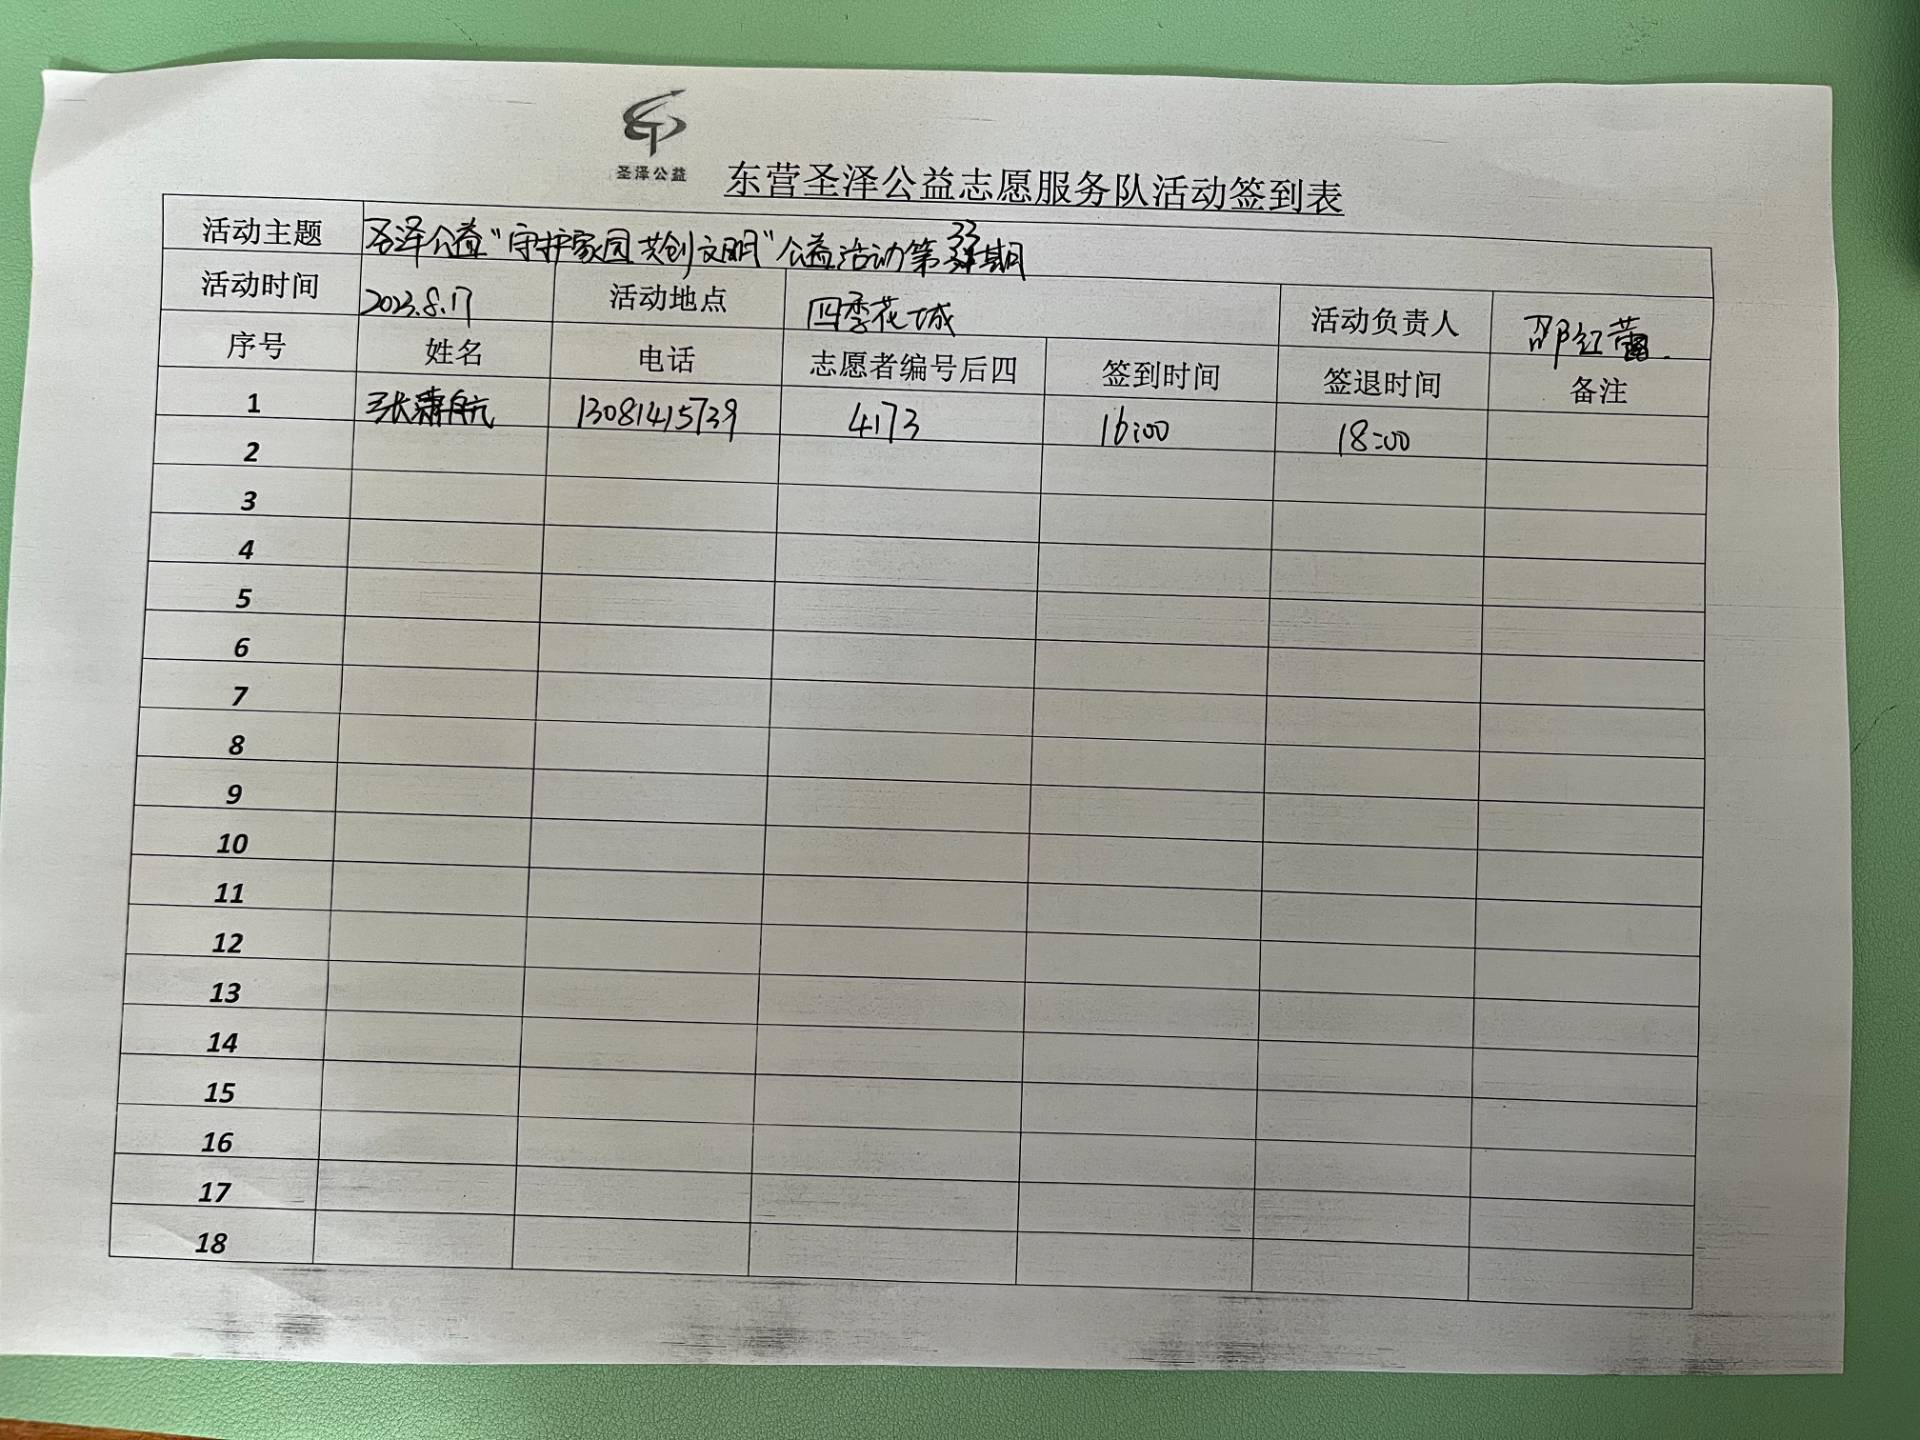 圣泽公益
东营圣泽公益志愿服务队活动签到表
活动主题 圣泽公益“守护家园共创文明”公益活动第33期
活动时间 2023.8.17 活动地点 四季花城 活动负责人 邵红蕾
序号 姓名 电话 志愿者编号后四 签到时间 签退时间 备注
1 张潇航 13081415739 4173 16:00 18:00
2
3
4
5
6
7
8
9
10
11
12
13
14
15
16
17
18